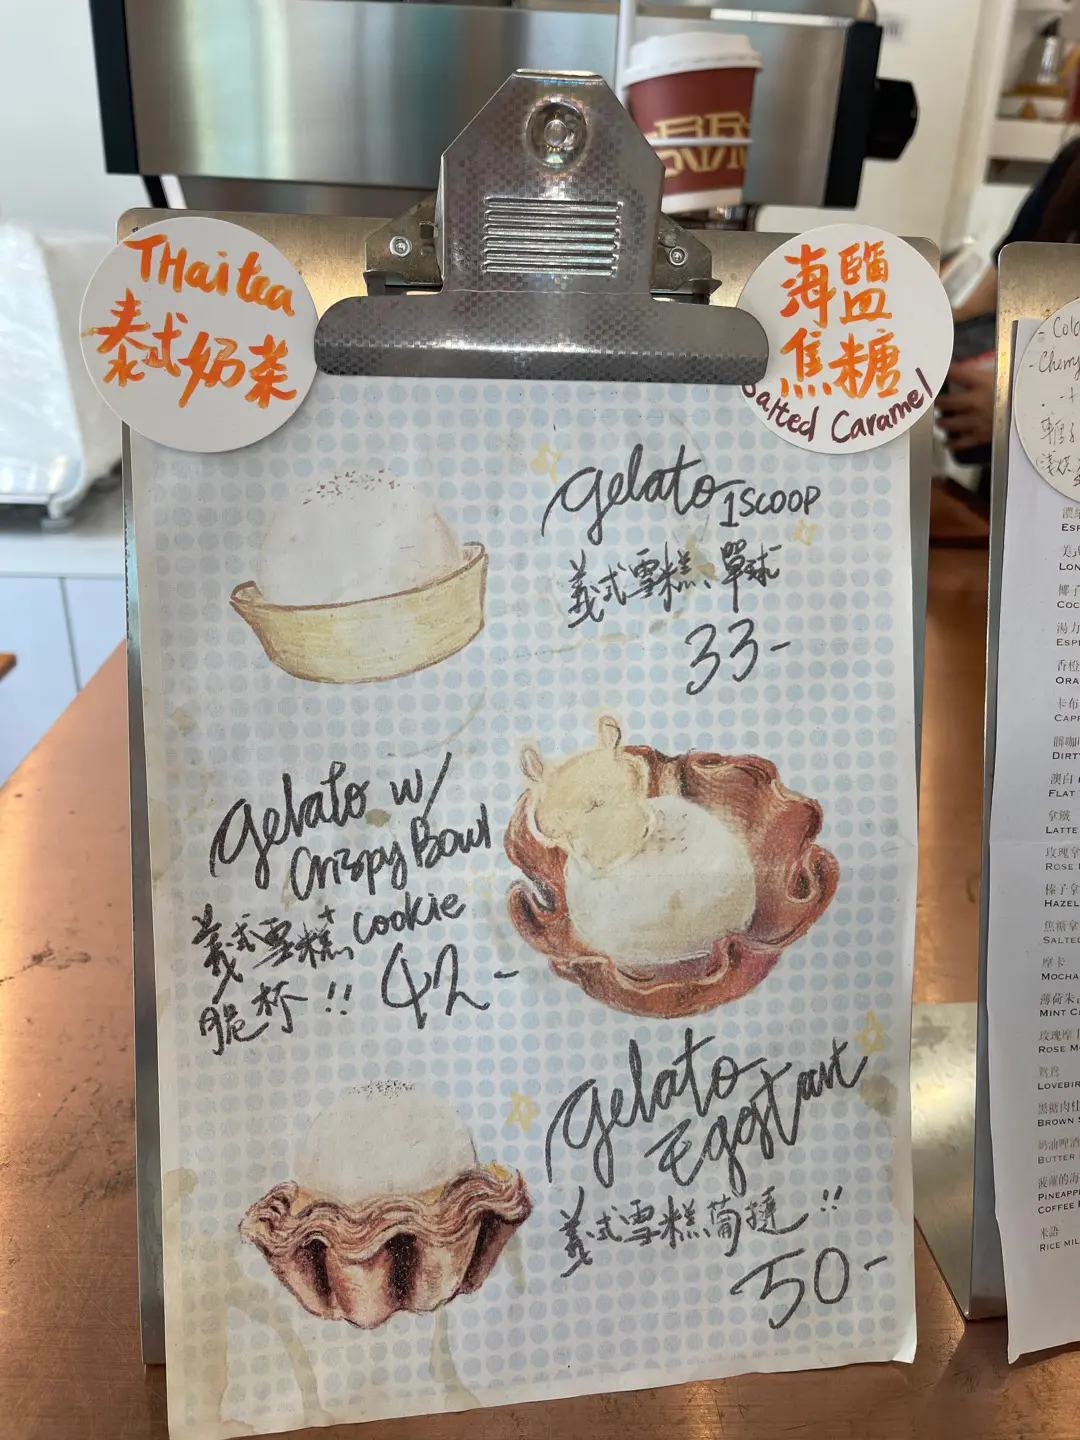 THai tea
泰式奶茶
海鹽
焦糖
Salted Caramel
gelato 1 SCOOP
義式雪糕、單球
33-
gelato w/
Crispy Bowl
+ cookie
義式雪糕
脆杯!! 42-
gelato
Eggtart
義式雪糕葡撻!!
50-
- Col
- Cherry
濃
ESP
美式
LON
椰子
COC
湯力
ESP
香橙
ORA
卡布
CAPP
髒咖啡
DIRTY
澳白
FLAT
拿鐵
LATTE
玫瑰拿
ROSE
榛子拿
HAZEL
焦糖拿
SALTED
摩卡
MOCHA
薄荷朱
MINT C
玫瑰摩
ROSE M
鴛鴦
LOVEBIR
黑糖肉桂
BROWN S
奶油啤酒
BUTTER
菠蘿的海
PINEAPP
COFFEE
米語
RICE MIL